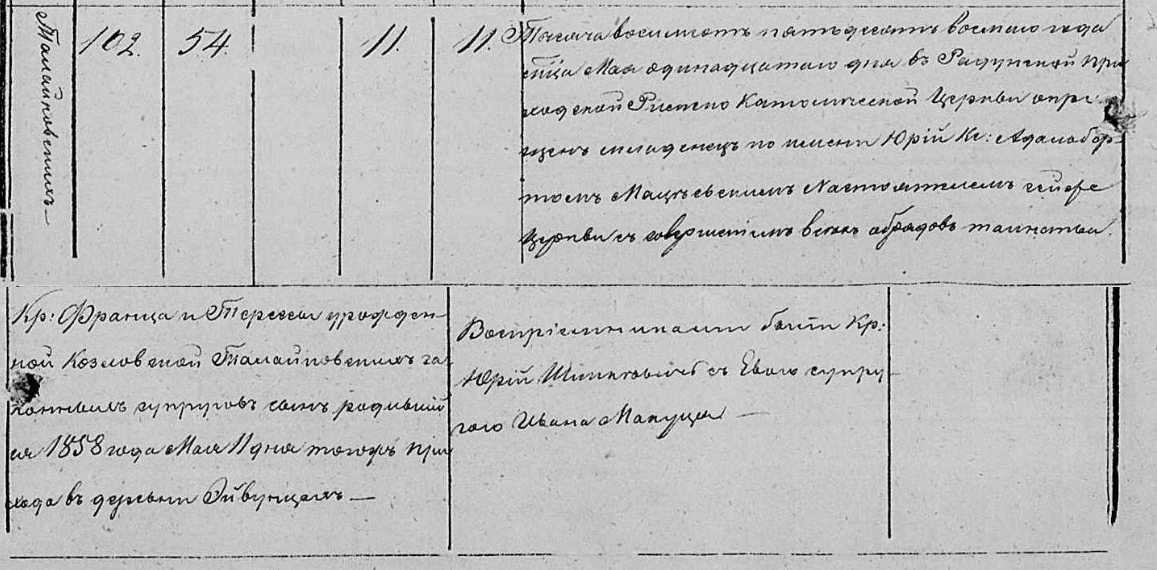 Талайковскихъ
102. 54. 11. 11.
Тысяча восемьсотъ пятьдесятъ восьмаго года
м̃ца Мая одинадцатаго дня въ Радунской при-
ходской Римско Католической Церкви окре-
щенъ младенецъ по имени Юрій Кс: Адальбер-
томъ Мацѣевскимъ Настоятелемъ сейже
Церкви съ совершеніемъ всѣхъ обрядовъ таинства.
Кр: Франца и Терессы урожден-
ной Козловской Талайковскихъ за-
конныхъ супруговъ сынъ родивший-
ся 1858 года Мая 11 дня тогожъ при-
хода въ деревни Эйвунцахъ —
Воспріемниками были Кр:
Юрій Шимковичъ съ Евою супру-
гою Ивана Мануца —